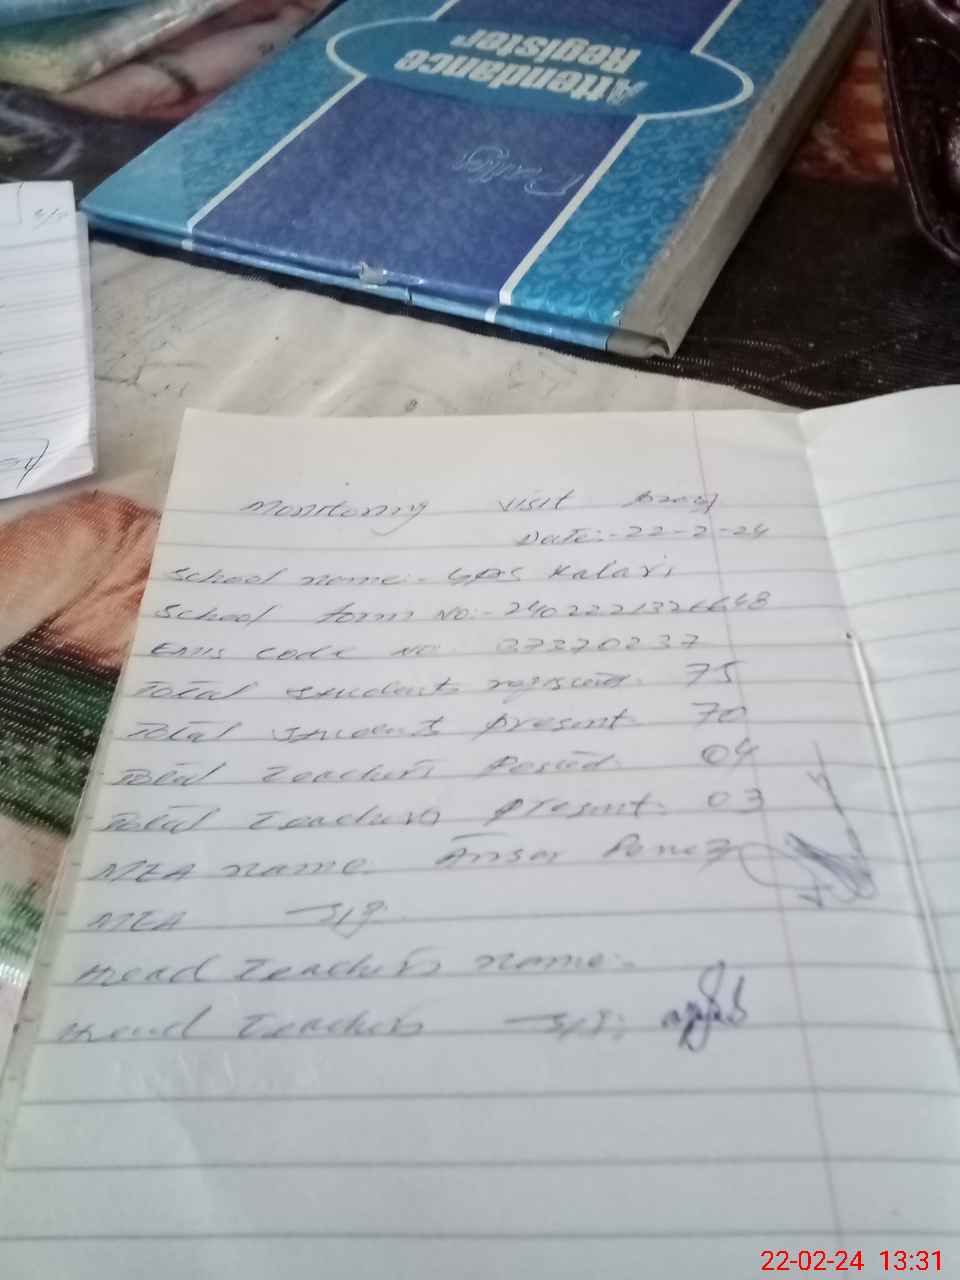 Attendance
Register
Monitoring visit proof
Date:-22-2-24
School name:- GPS Kalari
School form No:- 2402221326648
EMIS code no: 37370237
Total students register: 75
Total students present: 70
Total Teachers Posted: 04
Total Teachers present: 03
MEA name: Ansar
MEA Sig:
Head Teachers name:-
Head Teachers Sig:
22-02-24 13:31